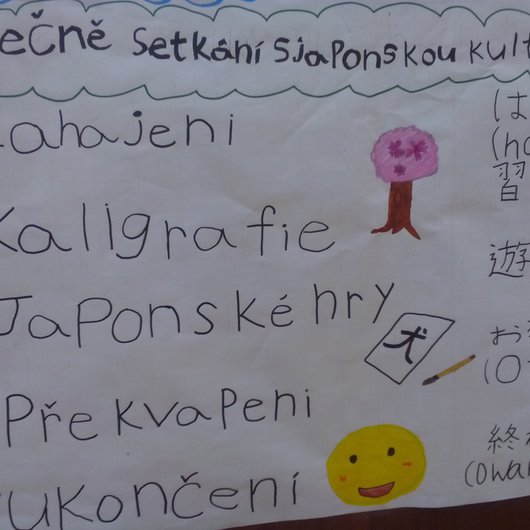 ečně setkání s japonskou kult
zahajeni
Kaligrafie
Japonské hry
Překvapeni
ukončení
は
(ha
習
遊
犬
お
(O
終わ
(owar